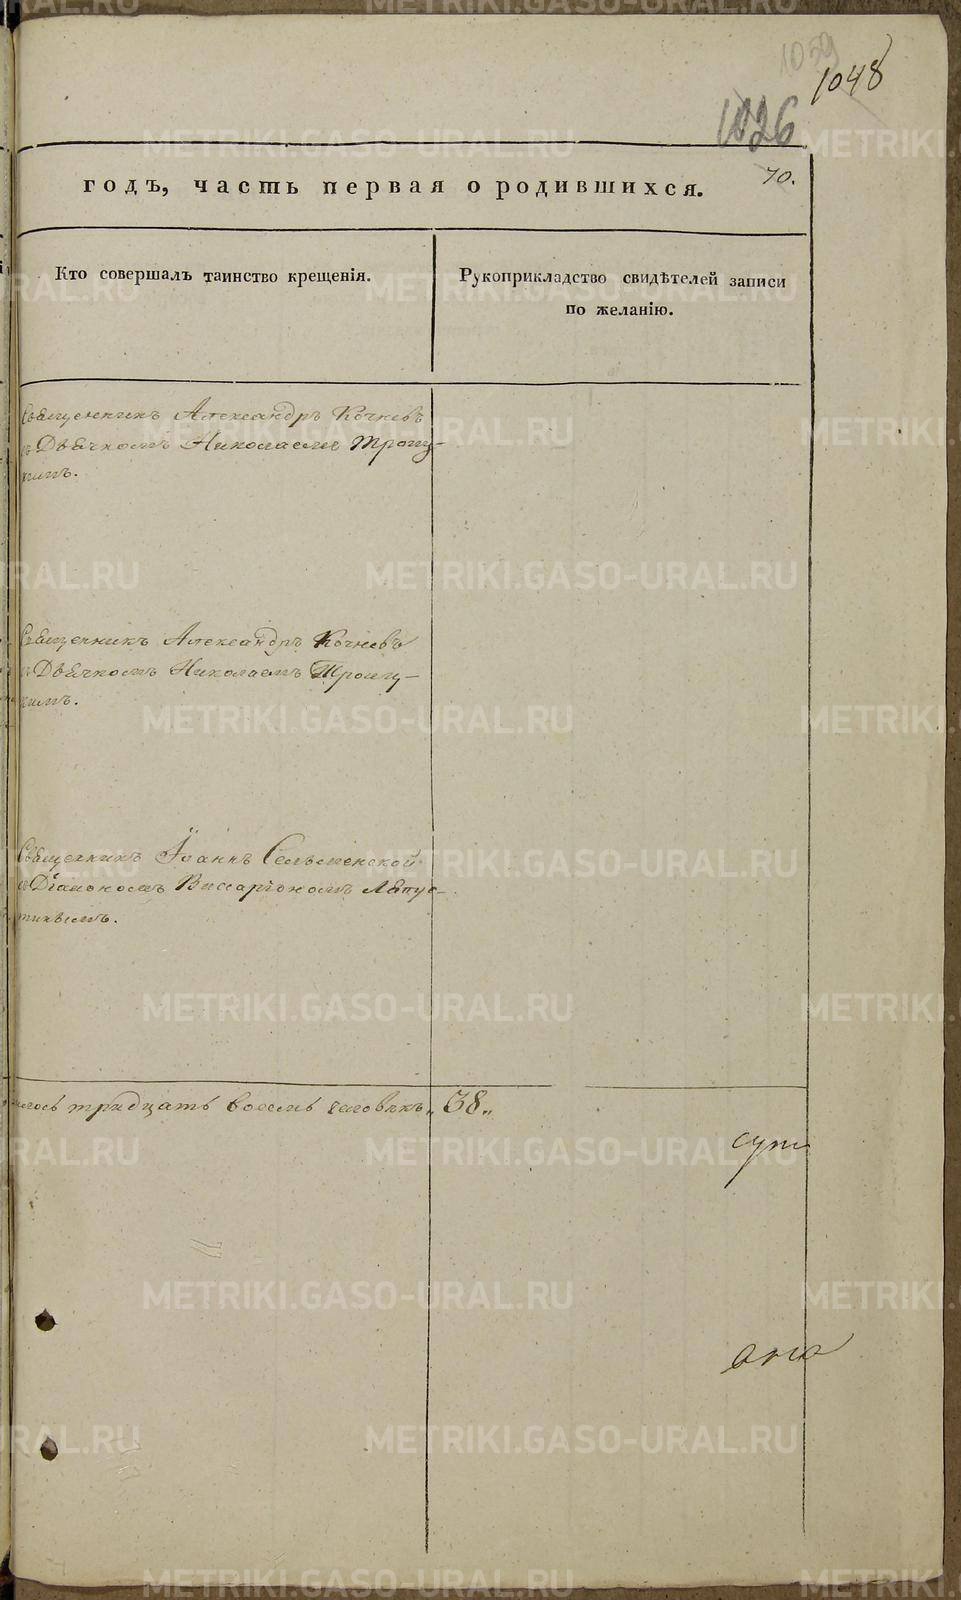 1059
1048
1026
70.
годъ, часть первая о родившихся.
Кто совершалъ таинство крещенія.
Рукоприкладство свидѣтелей записи
по желанію.
Священникъ Александръ Кочневъ
съ Дьячкомъ Николаемъ
кимъ.
Священникъ Александръ Кочневъ
съ Дьячкомъ Николаемъ
кимъ.
Священникъ Іоаннъ Сельменской
съ Діакономъ Виссаріономъ Ляпус-
тинымъ.
лось тридцать восемь человѣкъ „ 38 „
METRIKI.GASO-URAL.RU